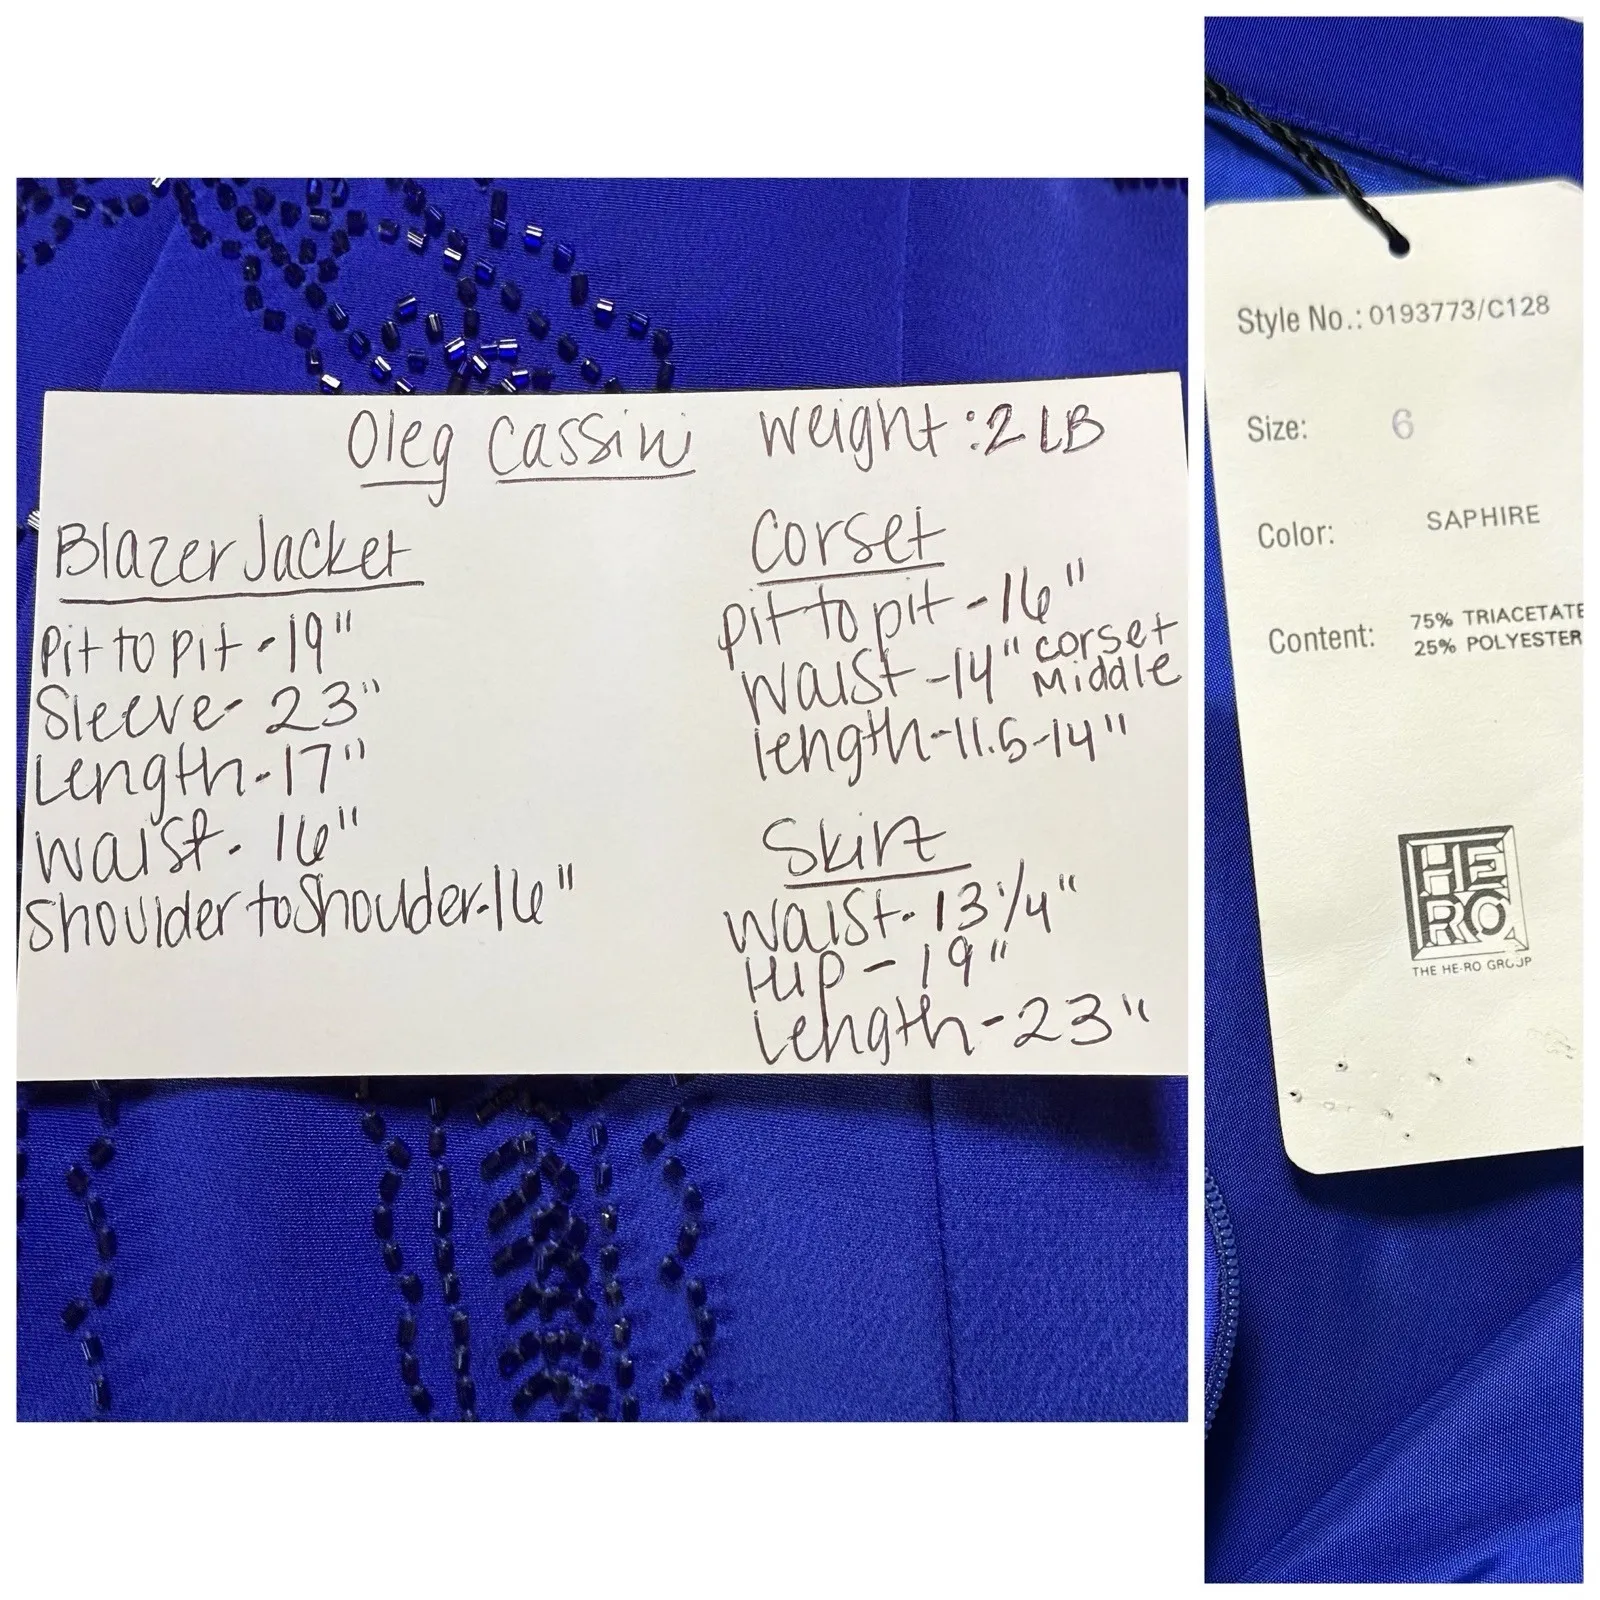 Oleg Cassini Weight: 2 LB
Blazer Jacket
Pit to pit - 19"
Sleeve - 23"
Length - 17"
Waist - 16"
Shoulder to Shoulder - 16"
Corset
pit to pit - 16"
Waist - 14" corset Middle
length - 11.5 - 14"
Skirt
Waist - 13 1/4"
Hip - 19"
Length - 23"
Style No.: 0193773/C128
Size: 6
Color: SAPHIRE
Content: 75% TRIACETATE
25% POLYESTER
HE
RO
THE HE-RO GROUP